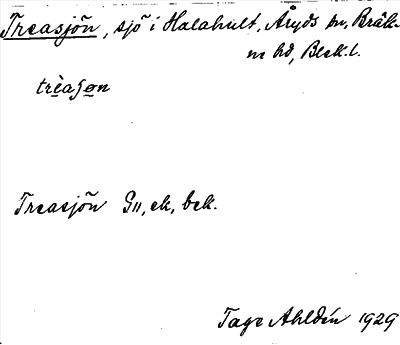 Treasjön, sjö i Halahult, Åryds sn, Bräk-
ne hd, Blek. l.
trèaʃo̲n
Treasjön Gll, ek, bek.
Tage Ahldén 1929